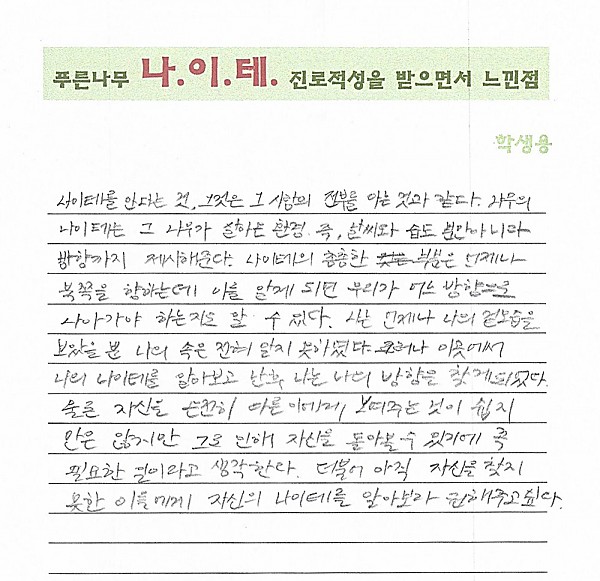 푸른나무 나.이.테. 진로적성을 받으면서 느낀점
학생용
나이테를 안다는 것, 그것은 그 사람의 전부를 아는 것과 같다. 나무의
나이테는 그 나무가 속하는 환경 즉, 날씨와 습도 뿐만아니라
방향까지 제시해준다. 나이테의 촘촘한 부분은 언제나
북쪽을 향하는데 이를 알게 되면 우리가 어느 방향으로
나아가야 하는지도 알 수 있다. 나는 언제나 나의 겉모습을
보았을 뿐 나의 속은 전혀 알지 못하였다. 그러나 이곳에서
나의 나이테를 알아보고 난후 나는 나의 방향을 찾게되었다.
물론 자신을 온전히 다른이에게 보여주는 것이 쉽지
만은 않지만 그로 인해 자신을 돌아볼 수 있기에 꼭
필요한 일이라고 생각한다. 더불어 아직 자신을 찾지
못한 이들에게 자신의 나이테를 알아보라 권해주고싶다.